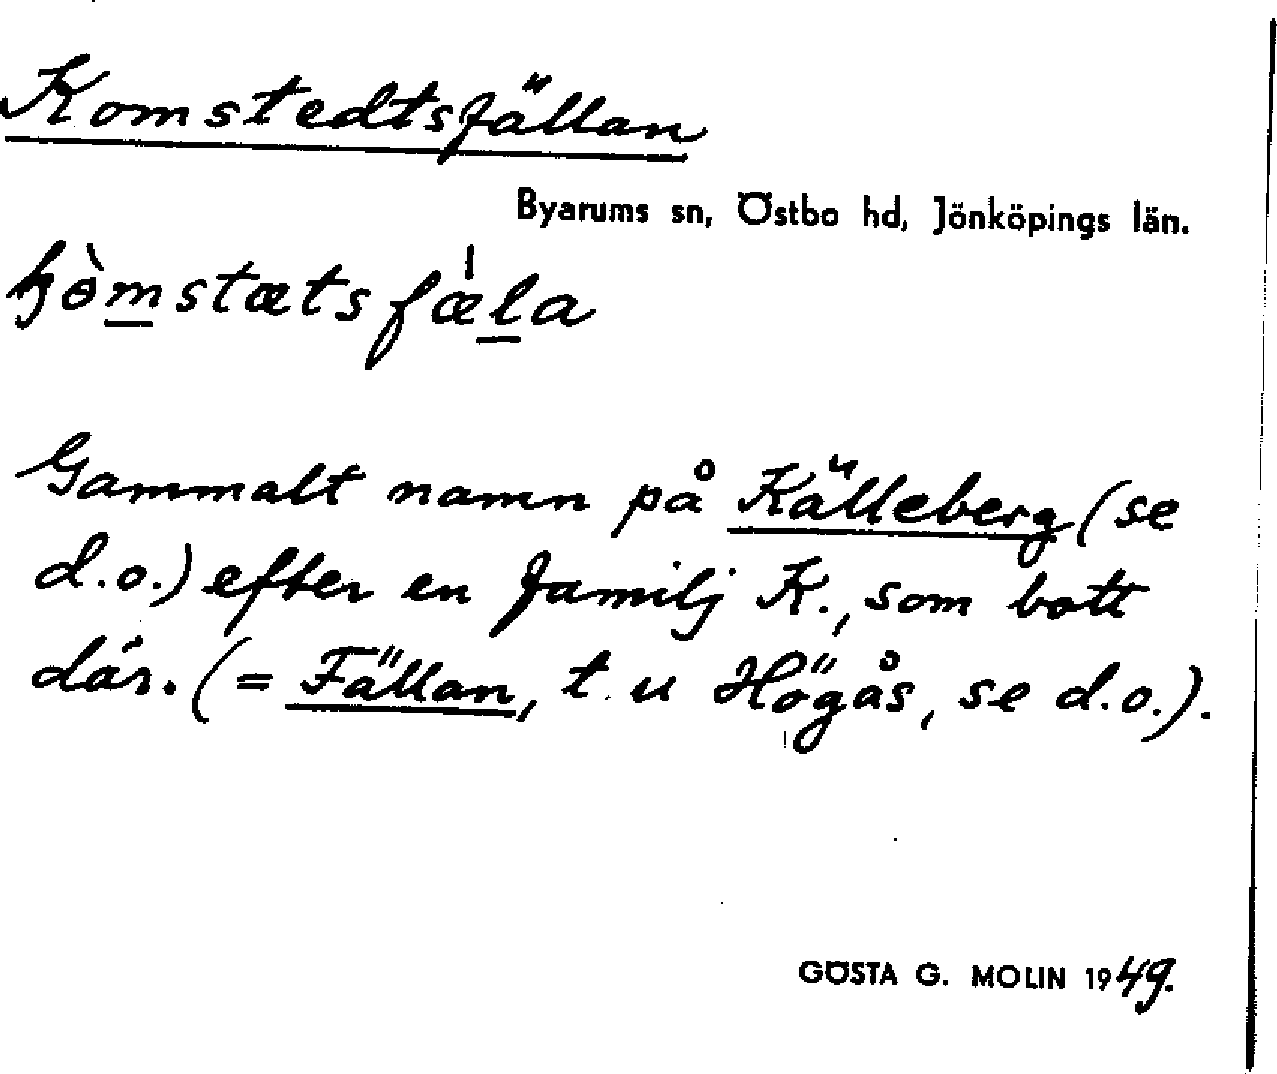 Komstedtsfällan
Byarums sn, Östbo hd, Jönköpings län.
kòmstætsfæ̍la
Gammalt namn på Källeberg (se
d.o.) efter en familj K., som bott
där. (= Fällan, t. u Högås, se d.o.).
GÖSTA G. MOLIN 1949.